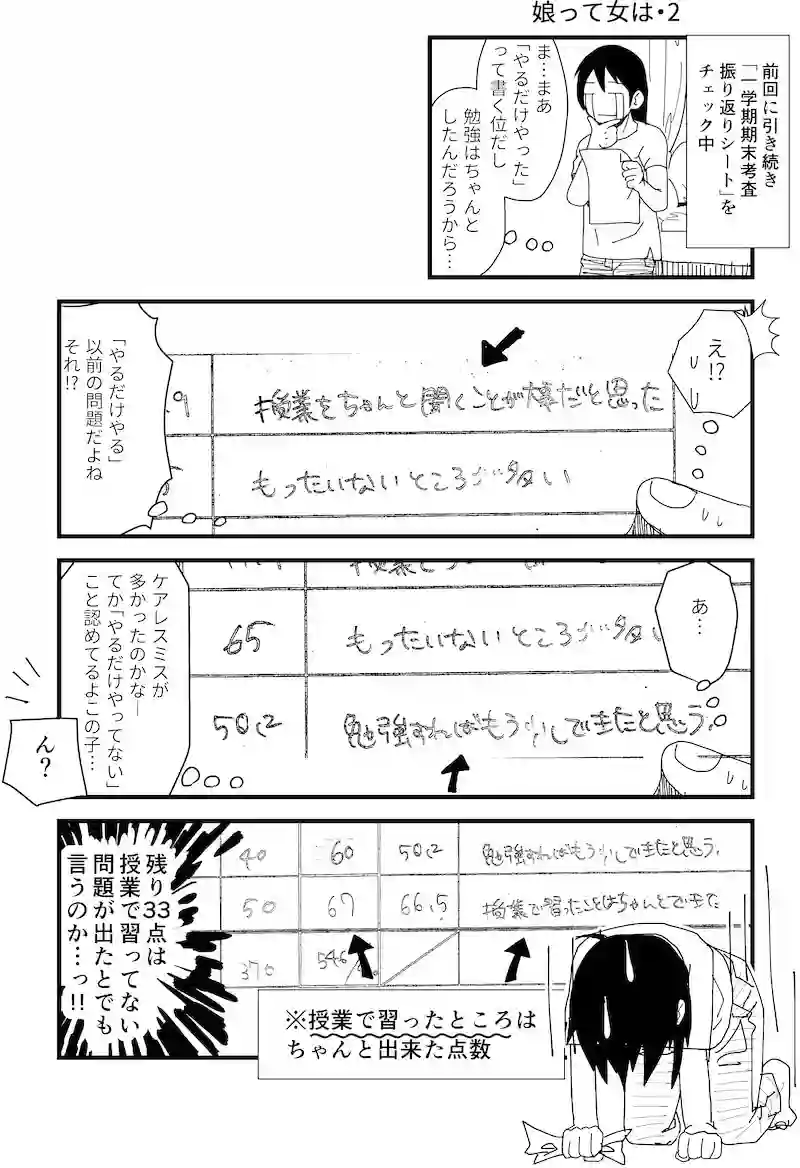 娘って女は・2
前回に引き続き
「一学期期末考査
振り返りシート」を
チェック中
ま…まあ
「やるだけやった」
って書く位だし
勉強はちゃんと
したんだろうから…
え!?
授業をちゃんと聞くことが大事だと思った
もったいないところが多い
「やるだけやる」
以前の問題だよね
それ!?
あ…
65
もったいないところが多い
50.2
勉強すればもう少しできたと思う。
ケアレスミスが
多かったのかなー
てか「やるだけやってない」
こと認めてるよこの子…
ん?
40 60 50.2 勉強すればもう少しできたと思う。
50 67 66.5 授業で習ったことはちゃんとできた
370 546
※授業で習ったところは
ちゃんと出来た点数
残り33点は
授業で習ってない
問題が出たとでも
言うのか…っ!!